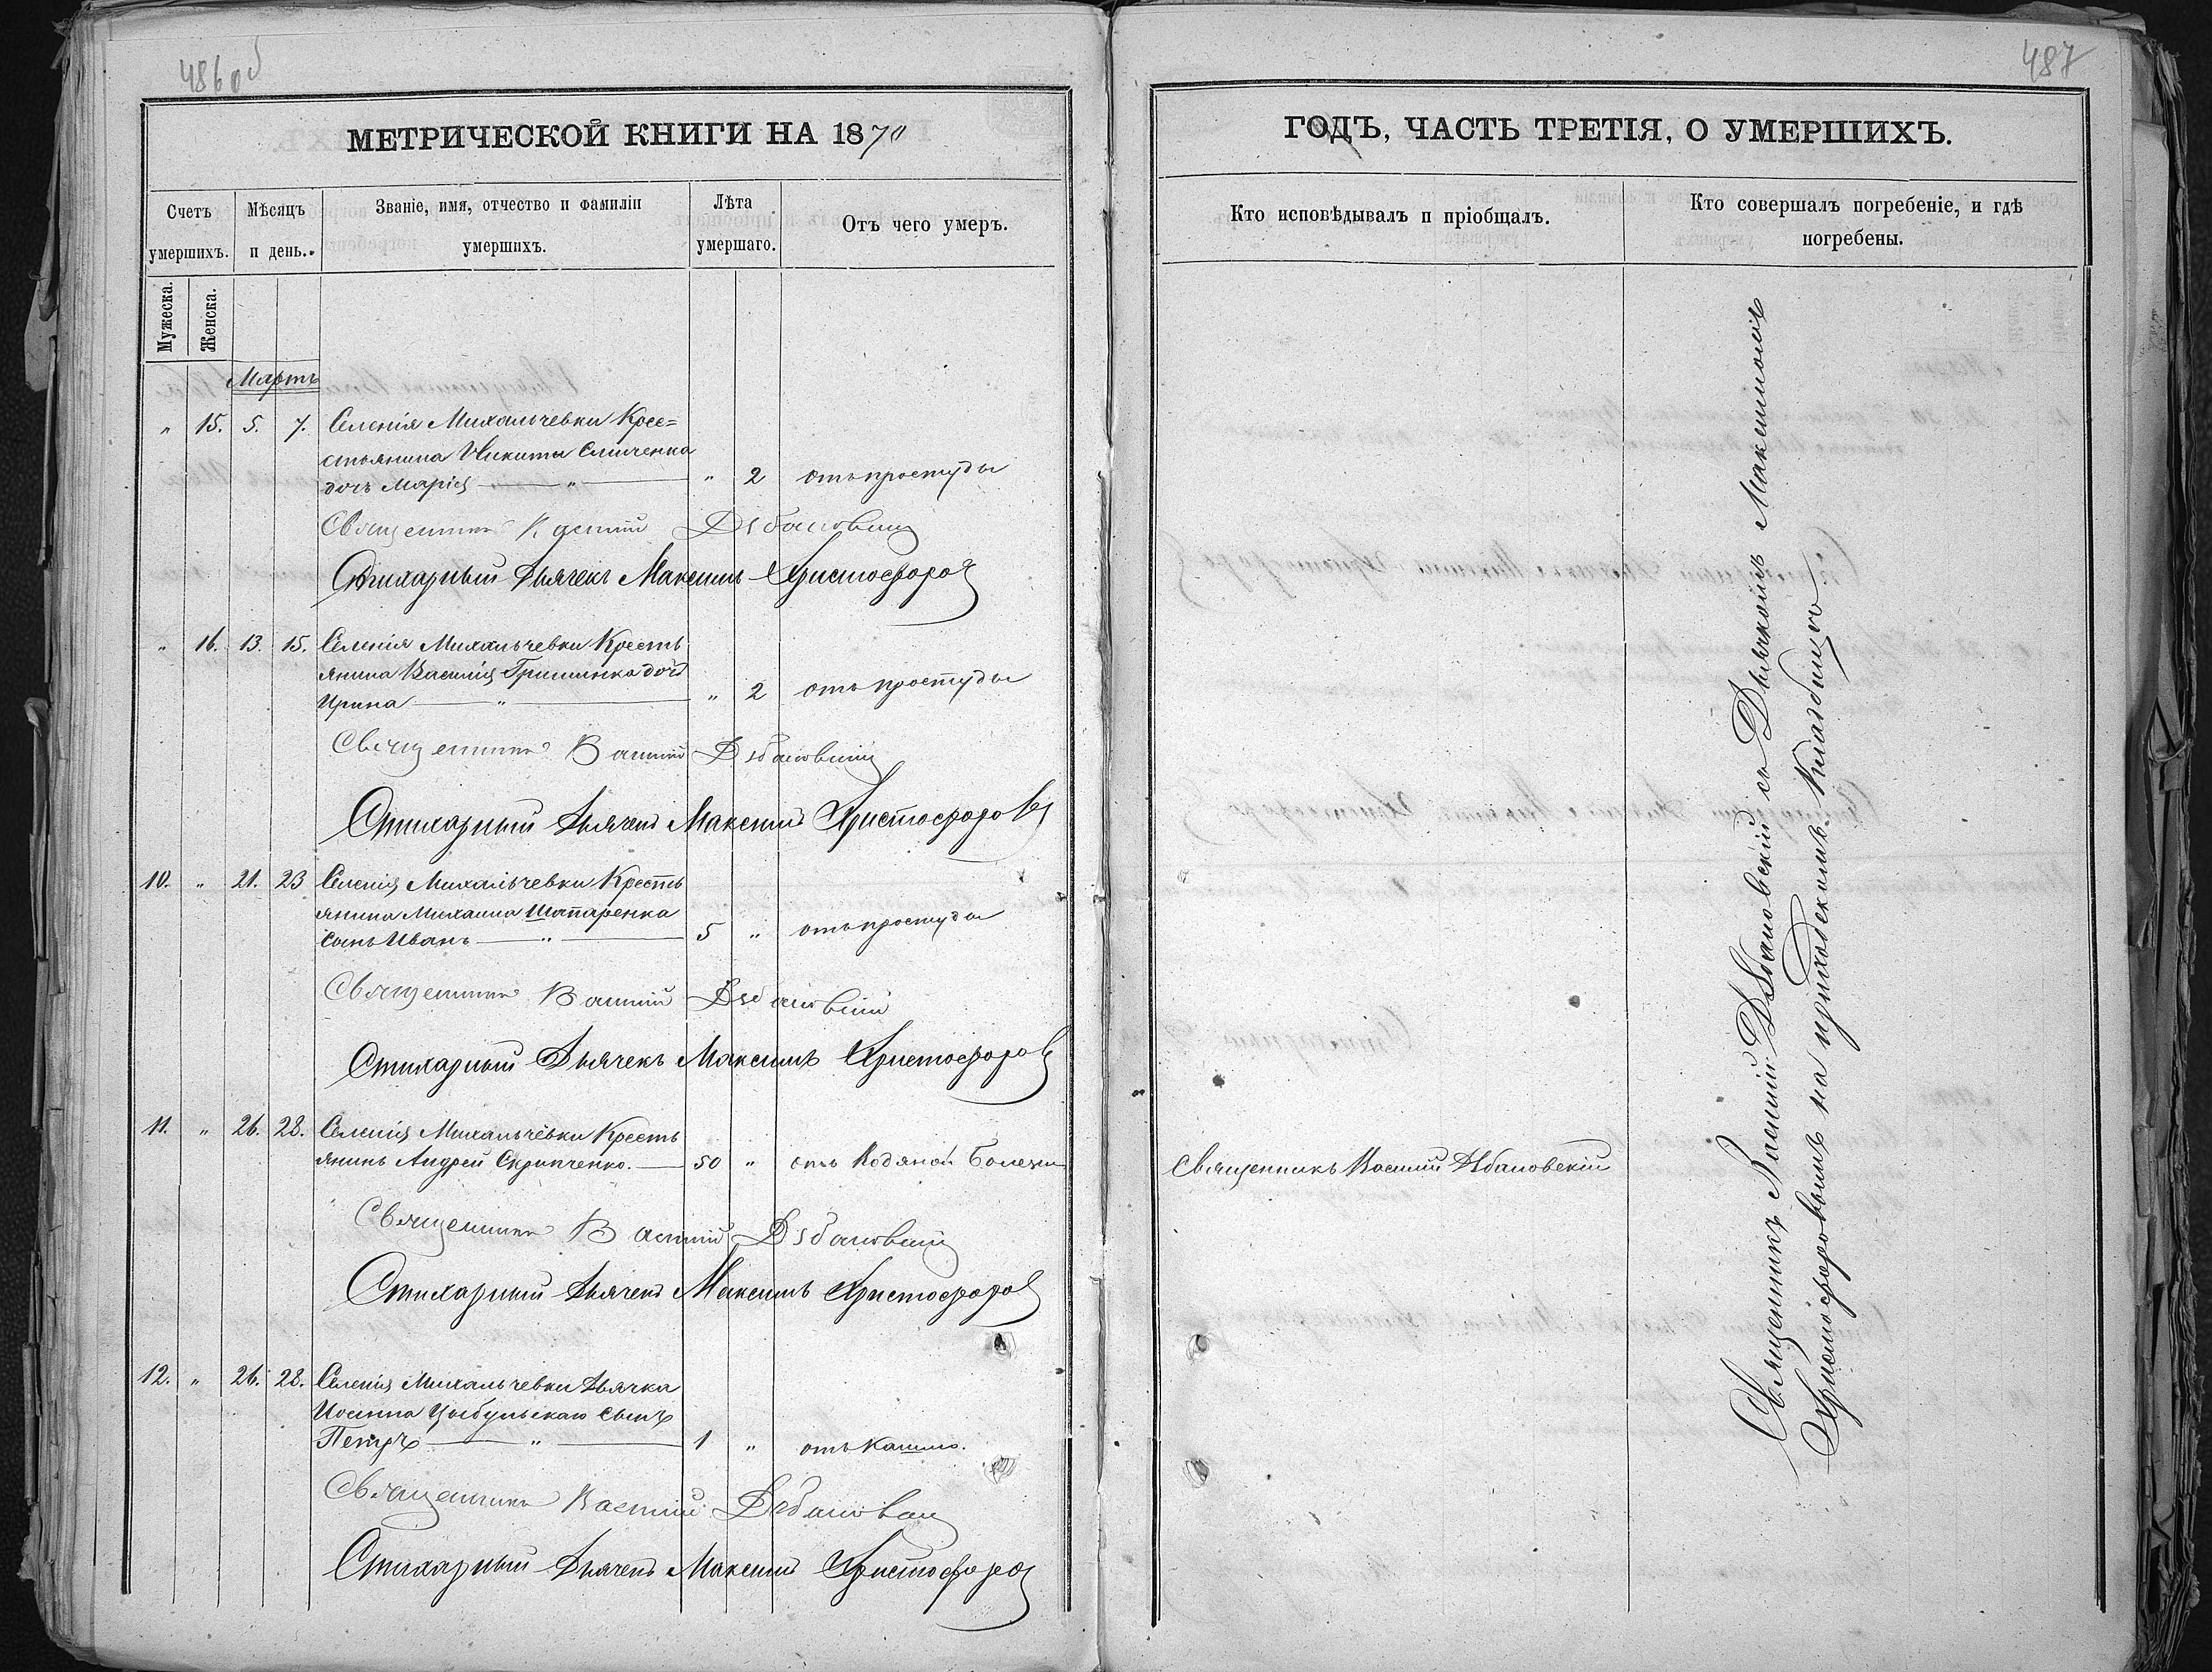 486 об
МЕТРИЧЕСКОЙ КНИГИ НА 1870
Счетъ умершихъ.
Мѣсяцъ и день.
Званіе, имя, отчество и фамиліи умершихъ.
Лѣта умершаго.
Отъ чего умеръ.
Мужеска.
Женска.
Мартъ
" 15. 5. 7. Селенія Михальчевки Крес=
стьянина Никиты
дочь Марія " " 2 отъ простуды
Священникъ Василій Дѣбановскій
Стихарный Дьячекъ Максимъ Христофоровъ
" 16. 13. 15. Селенія Михальчевки Кресть
янина Василія Гришинка дочь
Ирина " " 2 отъ простуды
Священникъ Василій Дѣбановскій
Стихарный Дьячекъ Максимъ Христофоровъ
10. " 21. 23 Селенія Михальчевки Кресть
янина Михаила Шапаренка
сынъ Иванъ " 5 " отъ простуды
Священникъ Василій Дѣбановскій
Стихарный Дьячекъ Максимъ Христофоровъ
11. " 26. 28. Селенія Михальчевки Кресть
янинъ Андрей Скрипченко. 50 " отъ Водяной Болезни
Священникъ Василій Дѣбановскій
Стихарный Дьячекъ Максимъ Христофоровъ
12. " 26. 28. Селенія Михальчевки Дьячка
Иосифа Цыбульскаго сынъ
Петръ " 1 " отъ кашлю.
Священникъ Василій Дѣбановскій
Стихарный Дьячекъ Максимъ Христофоровъ
487
ГОДЪ, ЧАСТЬ ТРЕТІЯ, О УМЕРШИХЪ.
Кто исповѣдывалъ и пріобщалъ.
Кто совершалъ погребеніе, и гдѣ погребены.
Священникъ Василій Дѣбановскій
Священникъ Василій Дѣбановскій съ Дьячкомъ Максимомъ
Христофоровымъ на приходскомъ кладбищѣ